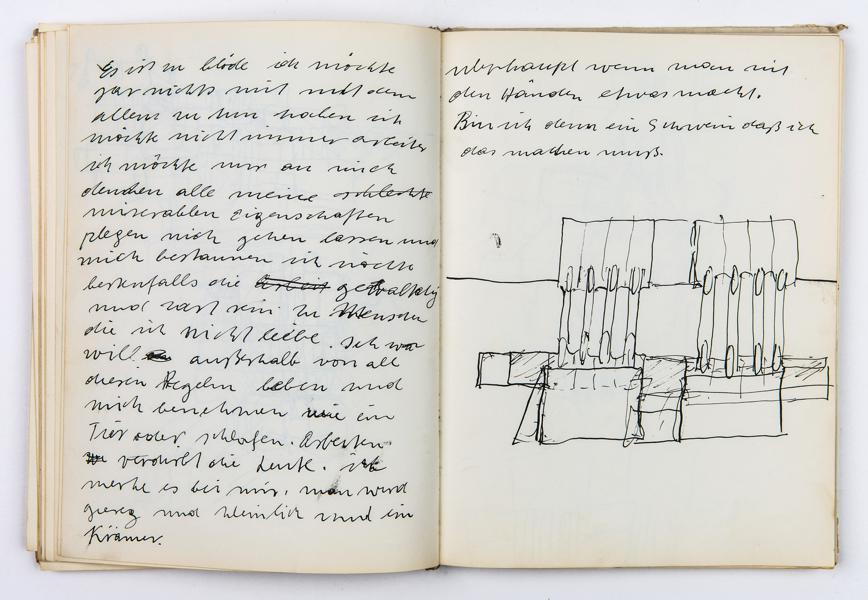 Es ist zu blöde ich möchte
gar nichts mit mit dem
allem zu tun haben ich
möchte nicht immer arbeiten
ich möchte nur an mich
dencken alle meine schlechte
miserablen Eigenschaften
plegen mich gehen lassen und
mich bestaunen ich möchte
bestenfalls die Arbeit gewaltätig
und zart sein zu Menschen
die ich nicht liebe. Ich
will außerhalb von all
diesen Regeln leben und
mich benehmen wie ein
Tier oder schlafen. Arbeiten
verdirbt die Leute. ich
merke es bei mir, man wird
gierig und kleinlich und ein
Krämer.
überhaupt wenn man mit
den Händen etwas macht.
Bin ich denn ein Schwein daß ich
das machen muß.